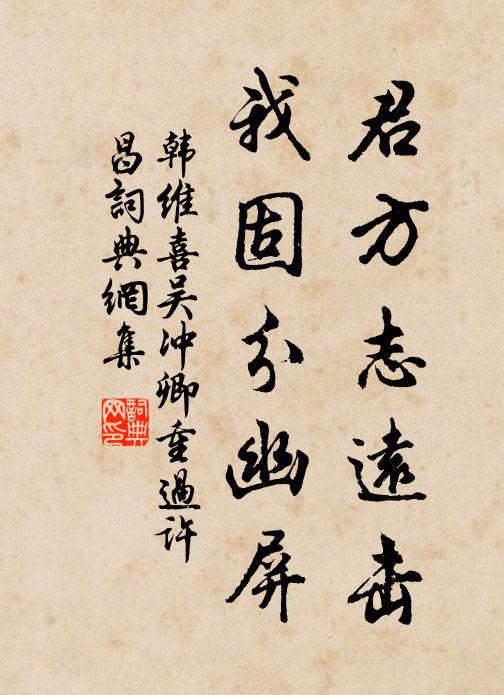 君方志遠击
我固分幽屏
韩維喜吴冲卿重過许
昌詞典網集
詞典网印